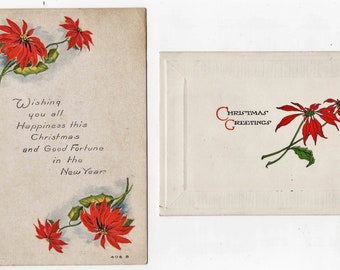 Wishing
you all
Happiness this
Christmas
and Good Fortune
in the
New Year
CHRISTMAS
GREETINGS